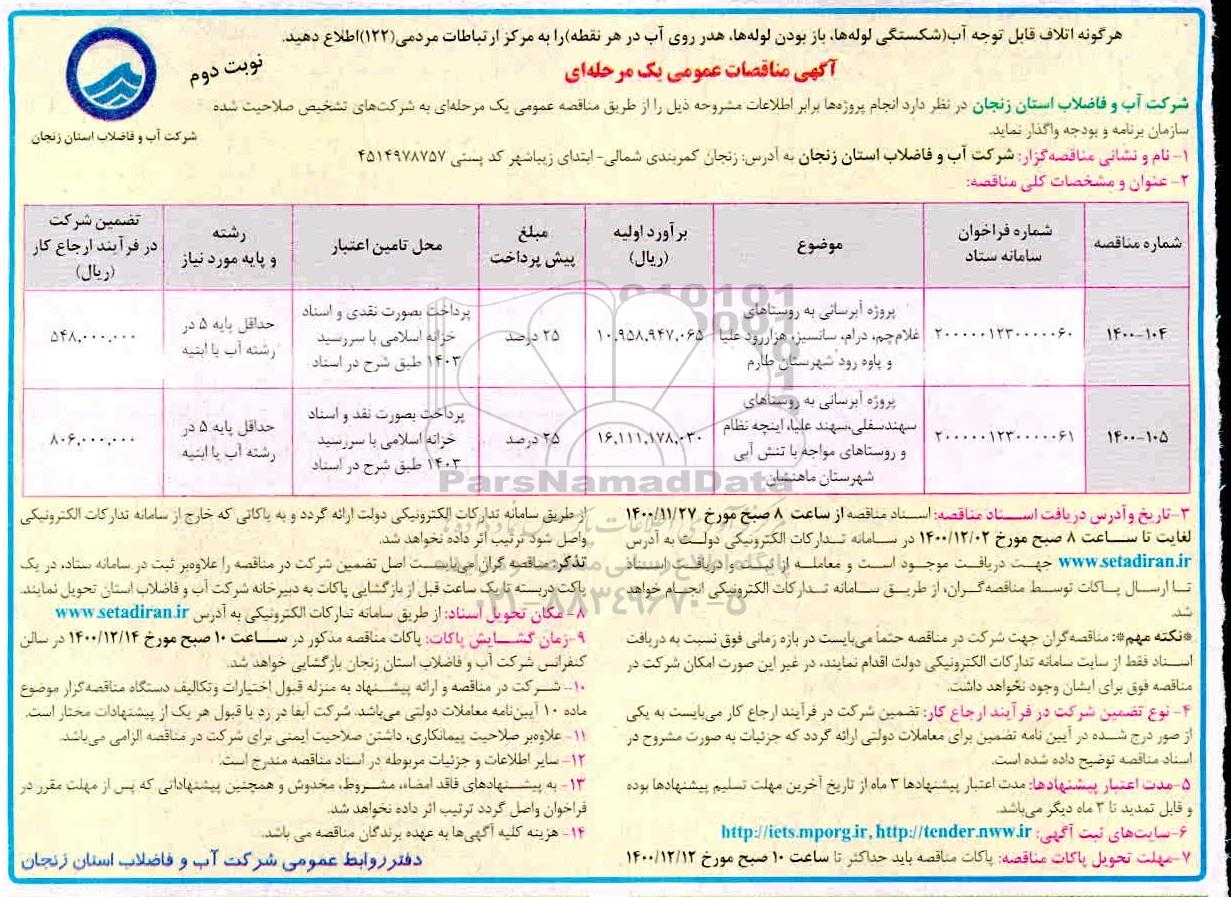 هرگونه اتلاف قابل توجه آب(شکستگی لوله‌ها، باز بودن لوله‌ها، هدر روی آب در هر نقطه)را به مرکز ارتباطات مردمی(۱۲۲)اطلاع دهید.
آگهی مناقصات عمومی یک مرحله‌ای
نوبت دوم
شرکت آب و فاضلاب استان زنجان
شرکت آب و فاضلاب استان زنجان در نظر دارد انجام پروژه‌ها برابر اطلاعات مشروحه ذیل را از طریق مناقصه عمومی یک مرحله‌ای به شرکت‌های تشخیص صلاحیت شده
سازمان برنامه و بودجه واگذار نماید.
۱- نام و نشانی مناقصه‌گزار: شرکت آب و فاضلاب استان زنجان به آدرس: زنجان کمربندی شمالی- ابتدای زیباشهر کد پستی ۴۵۱۴۹۷۸۷۵۷
۲- عنوان و مشخصات کلی مناقصه:
شماره مناقصه
شماره فراخوان
سامانه ستاد
موضوع
برآورد اولیه
(ریال)
مبلغ
پیش پرداخت
محل تامین اعتبار
رشته
و پایه مورد نیاز
تضمین شرکت
در فرآیند ارجاع کار
(ریال)
۱۴۰۰-۱۰۴
۲۰۰۰۰۰۱۲۳۰۰۰۰۰۶۰
پروژه آبرسانی به روستاهای
غلام‌چم، درام، سانسیز، هزاررود علیا
و پاوه رود شهرستان طارم
۱۰.۹۵۸.۹۴۷.۰۶۵
۲۵ درصد
پرداخت بصورت نقدی و اسناد
خزانه اسلامی با سررسید
۱۴۰۳ طبق شرح در اسناد
حداقل پایه ۵ در
رشته آب یا ابنیه
۵۴۸.۰۰۰.۰۰۰
۱۴۰۰-۱۰۵
۲۰۰۰۰۰۱۲۳۰۰۰۰۰۶۱
پروژه آبرسانی به روستاهای
سهندسفلی،سهند علیا، اینچه نظام
و روستاهای مواجه با تنش آبی
شهرستان ماهنشان
۱۶.۱۱۱.۱۷۸.۰۳۰
۲۵ درصد
پرداخت بصورت نقد و اسناد
خزانه اسلامی با سررسید
۱۴۰۳ طبق شرح در اسناد
حداقل پایه ۵ در
رشته آب یا ابنیه
۸۰۶.۰۰۰.۰۰۰
ParsNamadData
۰۲۱-۸۸۳۴۹۶۷۰-۵
۳-تاریخ وآدرس دریافت اسناد مناقصه: اسناد مناقصه از ساعت ۸ صبح مورخ ۱۴۰۰/۱۱/۲۷
لغایت تا ساعت ۸ صبح مورخ ۱۴۰۰/۱۲/۰۲ در سامانه تدارکات الکترونیکی دولت به آدرس
www.setadiran.ir جهت دریافت موجود است و معامله از ثبت و دریافت اسناد
تا ارسال پاکات توسط مناقصه‌گران، از طریق سامانه تدارکات الکترونیکی انجام خواهد
شد.
*نکته مهم*: مناقصه‌گران جهت شرکت در مناقصه حتماً می‌بایست در بازه زمانی فوق نسبت به دریافت
اسناد فقط از سایت سامانه تدارکات الکترونیکی دولت اقدام نمایند، در غیر این صورت امکان شرکت در
مناقصه فوق برای ایشان وجود نخواهد داشت.
۴- نوع تضمین شرکت در فرآیند ارجاع کار: تضمین شرکت در فرآیند ارجاع کار می‌بایست به یکی
از صور درج شده در آیین نامه تضمین برای معاملات دولتی ارائه گردد که جزئیات به صورت مشروح در
اسناد مناقصه توضیح داده شده است.
۵-مدت اعتبار پیشنهادها: مدت اعتبار پیشنهادها ۳ ماه از تاریخ آخرین مهلت تسلیم پیشنهادها بوده
و قابل تمدید تا ۳ ماه دیگر می‌باشد.
۶-سایت‌های ثبت آگهی: http://iets.mporg.ir, http://tender.nww.ir
۷-مهلت تحویل پاکات مناقصه: پاکات مناقصه باید حداکثر تا ساعت ۱۰ صبح مورخ ۱۴۰۰/۱۲/۱۲
از طریق سامانه تدارکات الکترونیکی دولت ارائه گردد و به پاکاتی که خارج از سامانه تدارکات الکترونیکی
واصل شود ترتیب اثر داده نخواهد شد.
تذکر: مناقصه گران می‌بایست اصل تضمین شرکت در مناقصه را علاوه‌بر ثبت در سامانه ستاد، در یک
پاکت دربسته تا یک ساعت قبل از بازگشایی پاکات به دبیرخانه شرکت آب و فاضلاب استان تحویل نمایند.
۸- مکان تحویل اسناد: از طریق سامانه تدارکات الکترونیکی به آدرس www.setadiran.ir
۹-زمان گشایش پاکات: پاکات مناقصه مذکور در ساعت ۱۰ صبح مورخ ۱۴۰۰/۱۲/۱۴ در سالن
کنفرانس شرکت آب و فاضلاب استان زنجان بازگشایی خواهد شد.
۱۰- شرکت در مناقصه و ارائه پیشنهاد به منزله قبول اختیارات وتکالیف دستگاه مناقصه‌گزار موضوع
ماده ۱۰ آیین‌نامه معاملات دولتی می‌باشد. شرکت آبفا در رد یا قبول هر یک از پیشنهادات مختار است.
۱۱- علاوه‌بر صلاحیت پیمانکاری، داشتن صلاحیت ایمنی برای شرکت در مناقصه الزامی می‌باشد.
۱۲- سایر اطلاعات و جزئیات مربوطه در اسناد مناقصه مندرج است.
۱۳- به پیشنهادهای فاقد امضاء، مشروط، مخدوش و همچنین پیشنهاداتی که پس از مهلت مقرر در
فراخوان واصل گردد ترتیب اثر داده نخواهد شد.
۱۴- هزینه کلیه آگهی‌ها به عهده برندگان مناقصه می باشد.
دفتر روابط عمومی شرکت آب و فاضلاب استان زنجان